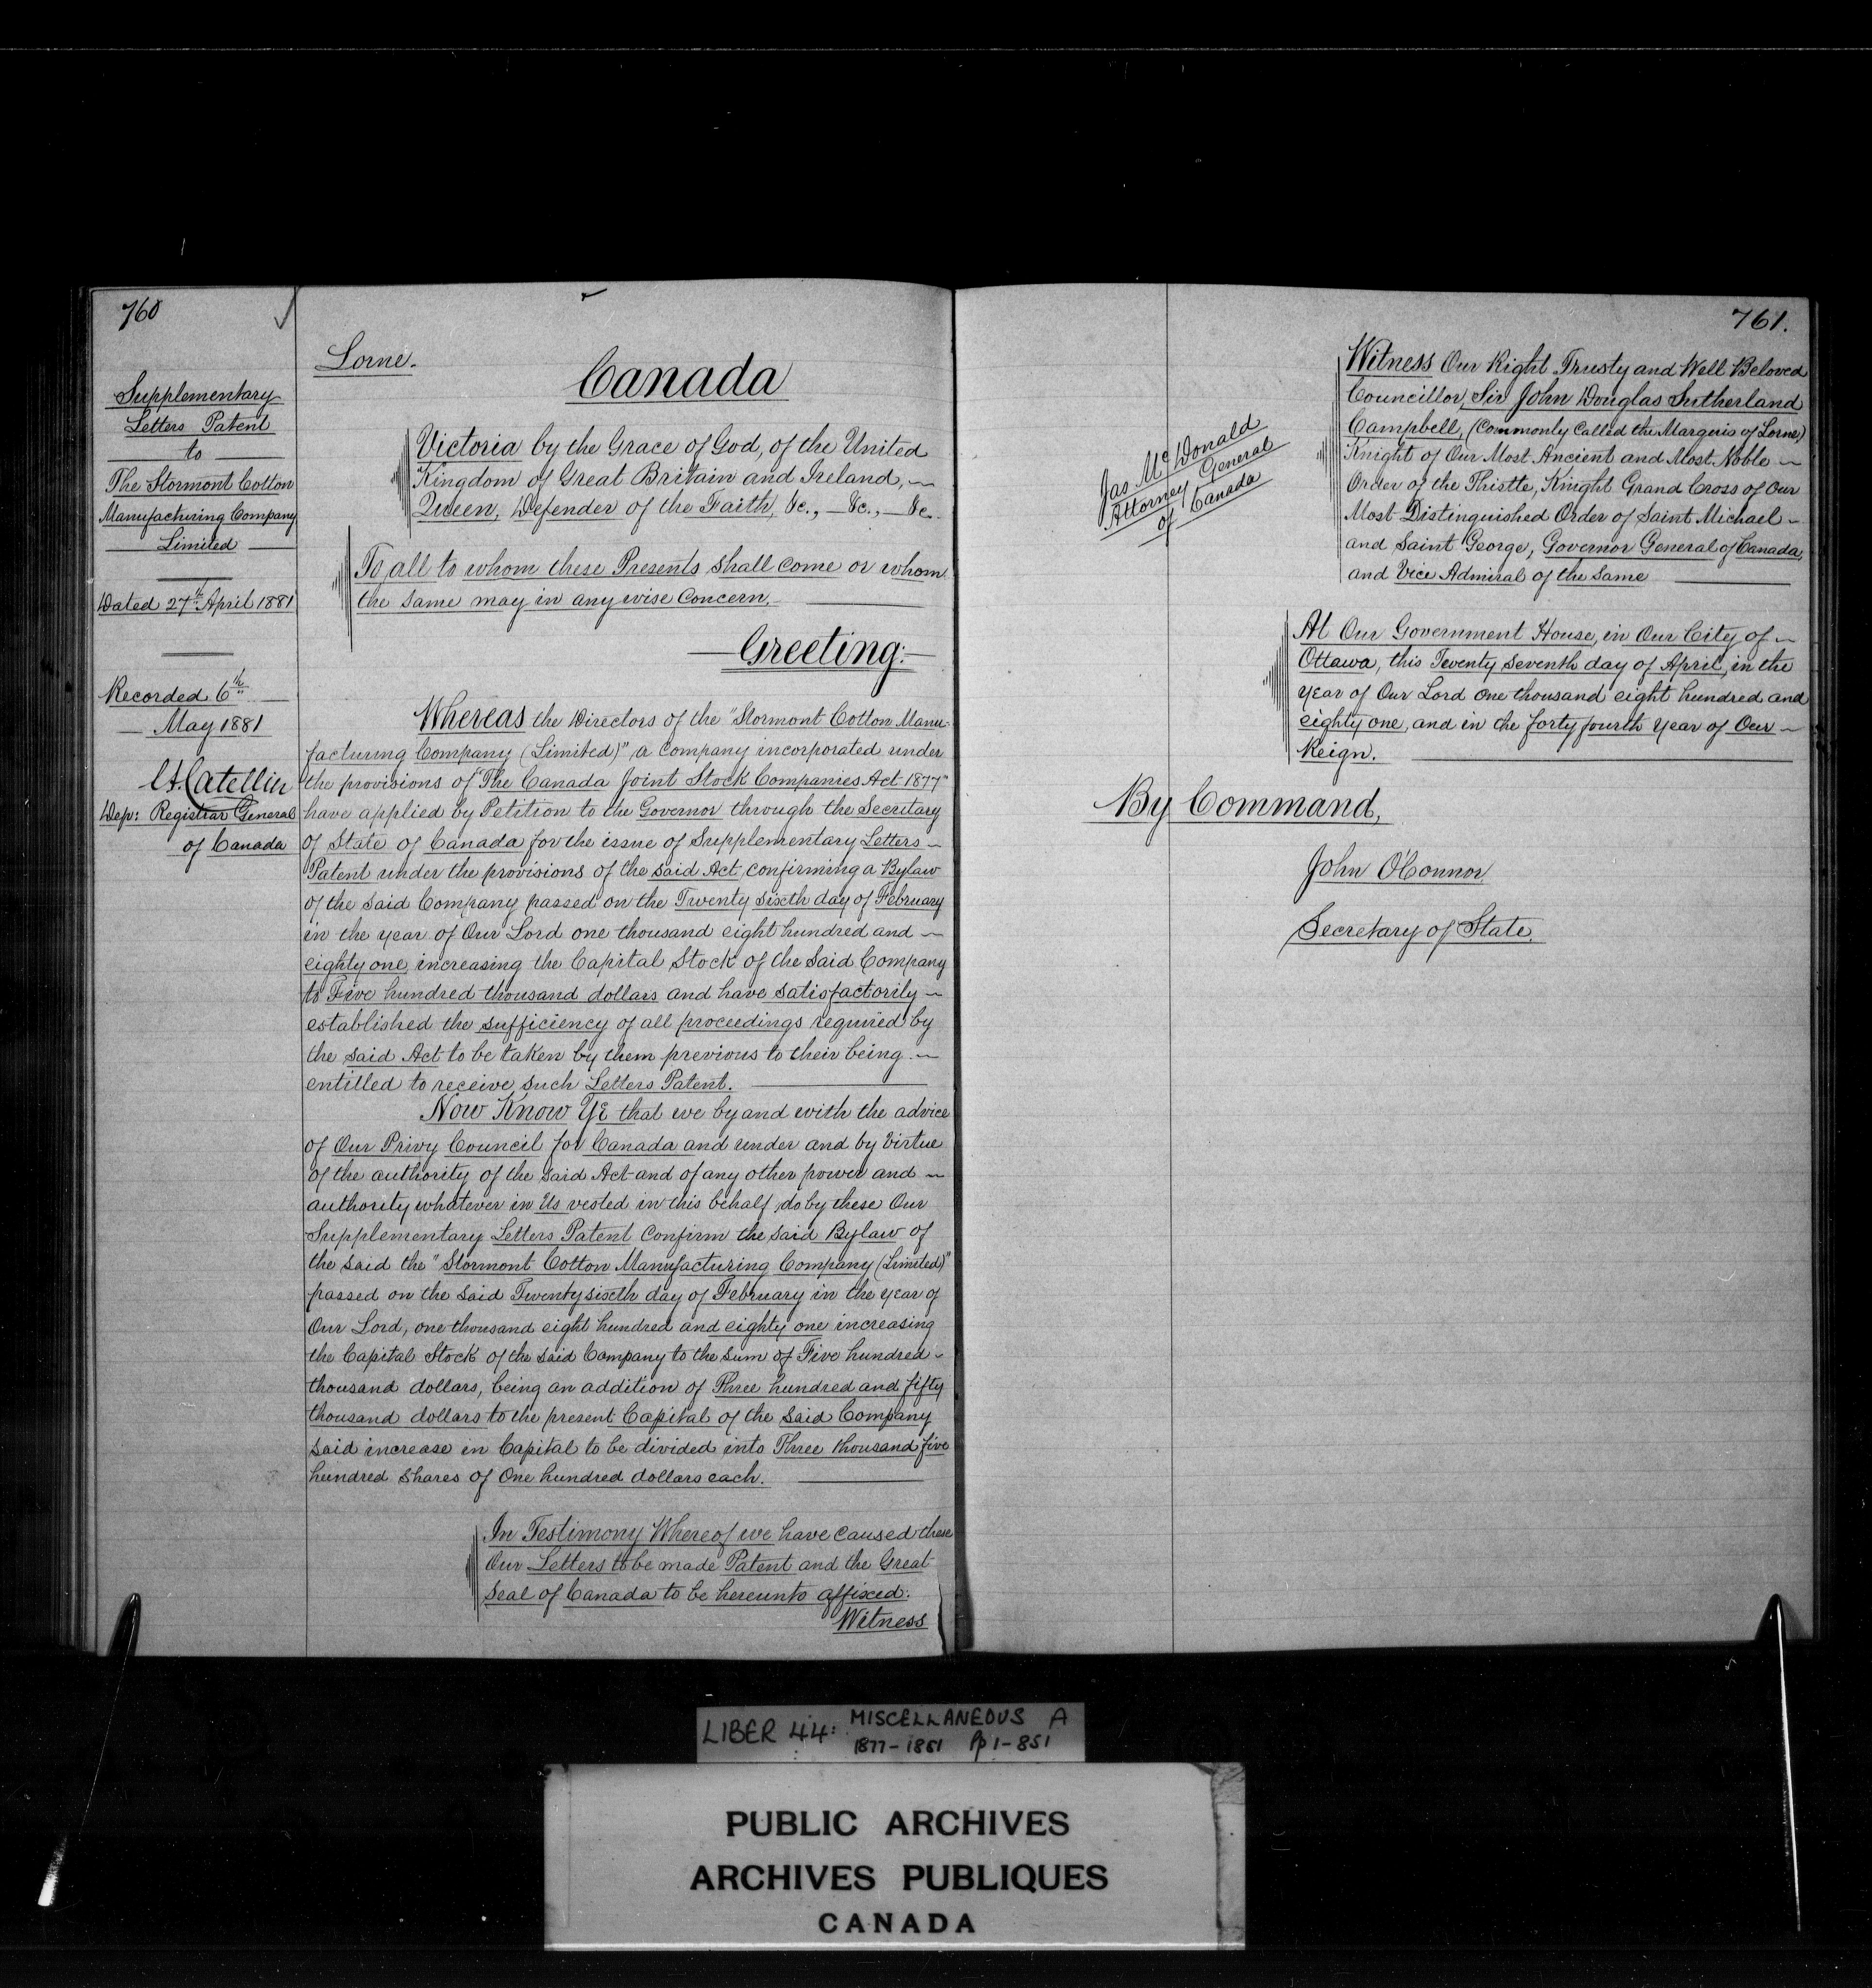 760
Supplementary
Letters Patent
to
The Stormont Cotton
Manufacturing Company
Limited
Dated 27th April 1881
Recorded 6th
May 1881
Catellier
Dep: Registrar General
of Canada
Lorne.
Canada
Victoria by the Grace of God, of the United
Kingdom of Great Britain and Ireland,
Queen, Defender of the Faith, &c., — &c., — &c.
To all to whom these Presents shall come or whom
the same may in any wise Concern,
— Greeting: —
Whereas the Directors of the "Stormont Cotton Manu-
facturing Company (Limited)" a Company incorporated under
the provisions of "The Canada Joint Stock Companies Act 1877"
have applied by Petition to the Governor through the Secretary
of State of Canada for the issue of Supplementary Letters
Patent under the provisions of the said Act, confirming a Bylaw
of the said Company passed on the Twenty sixth day of February
in the year of Our Lord one thousand eight hundred and
eighty one, increasing the Capital Stock of the said Company
to Five hundred thousand dollars and have satisfactorily
established the sufficiency of all proceedings required by
the said Act to be taken by them previous to their being
entitled to receive such Letters Patent.
Now Know Ye that we by and with the advice
of Our Privy Council for Canada and under and by virtue
of the authority of the said Act and of any other power and
authority whatever in Us vested in this behalf, do by these Our
Supplementary Letters Patent Confirm the said Bylaw of
the said the "Stormont Cotton Manufacturing Company (Limited)"
passed on the said Twenty sixth day of February in the year of
Our Lord, one thousand eight hundred and eighty one increasing
the Capital Stock of the said Company to the sum of Five hundred
thousand dollars, being an addition of Three hundred and fifty
thousand dollars to the present Capital of the said Company
said increase in Capital to be divided into Three thousand five
hundred shares of One hundred dollars each.
In Testimony Whereof we have caused these
Our Letters to be made Patent and the Great
Seal of Canada to be hereunto affixed:
Witness
761.
Jas McDonald
Attorney General
of Canada
Witness Our Right Trusty and Well Beloved
Councillor, Sir John Douglas Sutherland
Campbell, (Commonly Called the Marquis of Lorne,)
Knight of Our Most Ancient and Most Noble
Order of the Thistle, Knight Grand Cross of Our
Most Distinguished Order of Saint Michael
and Saint George, Governor General of Canada,
and Vice Admiral of the same
At Our Government House, in Our City of
Ottawa, this Twenty Seventh day of April, in the
year of Our Lord one thousand eight hundred and
eighty one, and in the forty fourth year of Our
Reign.
By Command,
John O'Connor
Secretary of State.
LIBER 44: MISCELLANEOUS A
1877-1881 Pp 1-851
PUBLIC ARCHIVES
ARCHIVES PUBLIQUES
CANADA